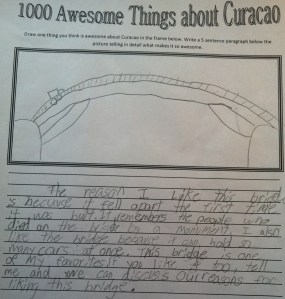 1000 Awesome Things about Curacao
Draw one thing you think is awesome about Curacao in the frame below. Write a 5 sentence paragraph below the
picture telling in detail what makes it so awesome.
The reason I like this bridge
is becuse it fell apart the first time
it was built. It remembers the people who
died on the bridge by a monument. I also
like the bridge because it can hold so
many cars at once. This bridge is one
of my favorites. If you like it too, tell
me and we can discuss our reasons for
liking this bridge.